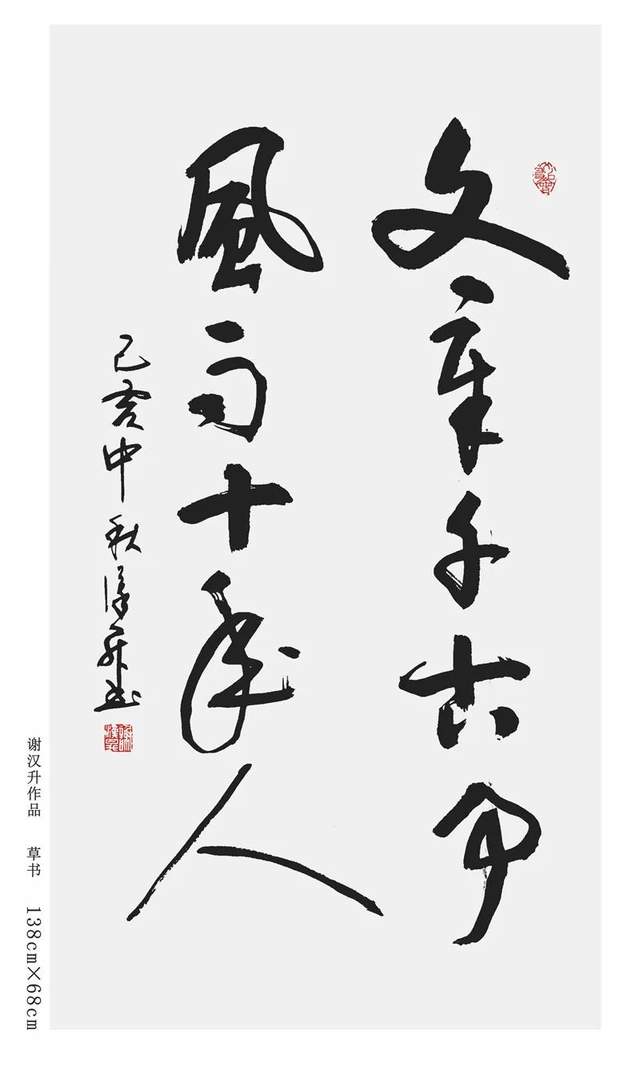 文章千古事
風雨十年人
己亥中秋漢升書
谢汉升作品 草书 138cm×68cm